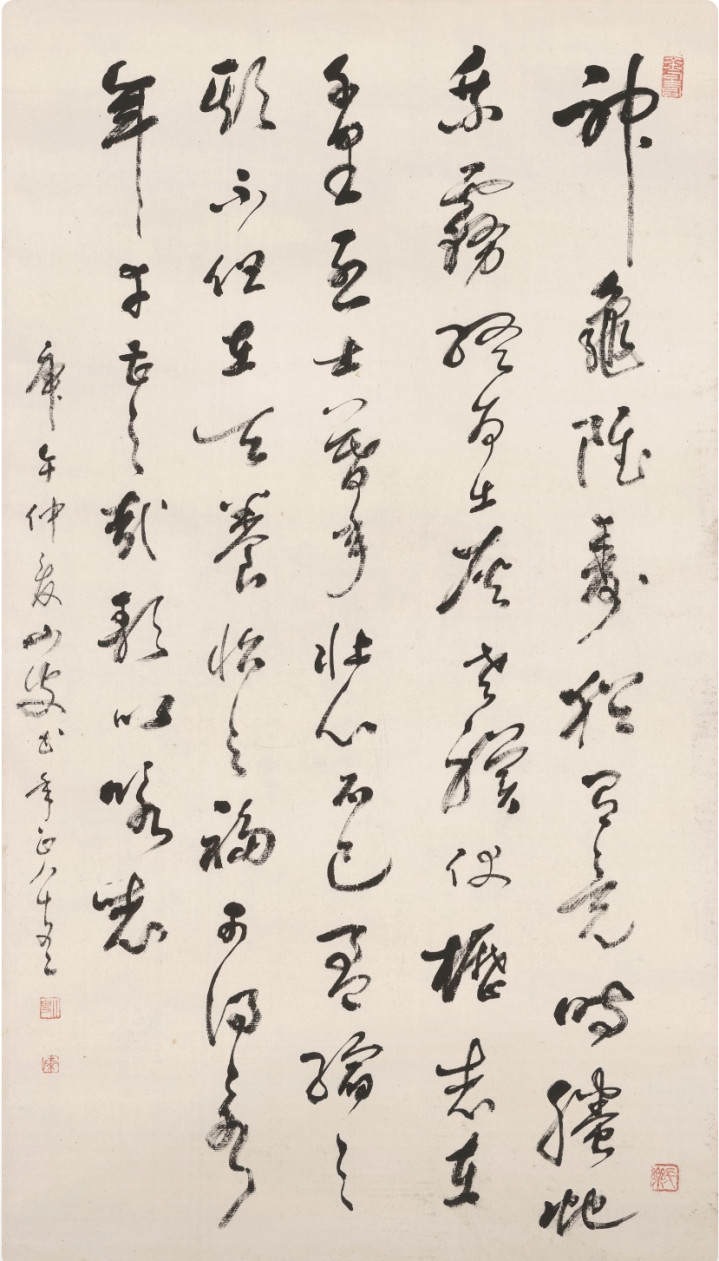 神龜雖壽猶有竟時螣蛇
乘霧終為土灰老驥伏櫪志在
千里烈士暮年壯心不已盈縮之
期不但在天養怡之福可得永
年幸甚至哉歌以咏志
庚午仲夏书年正八十